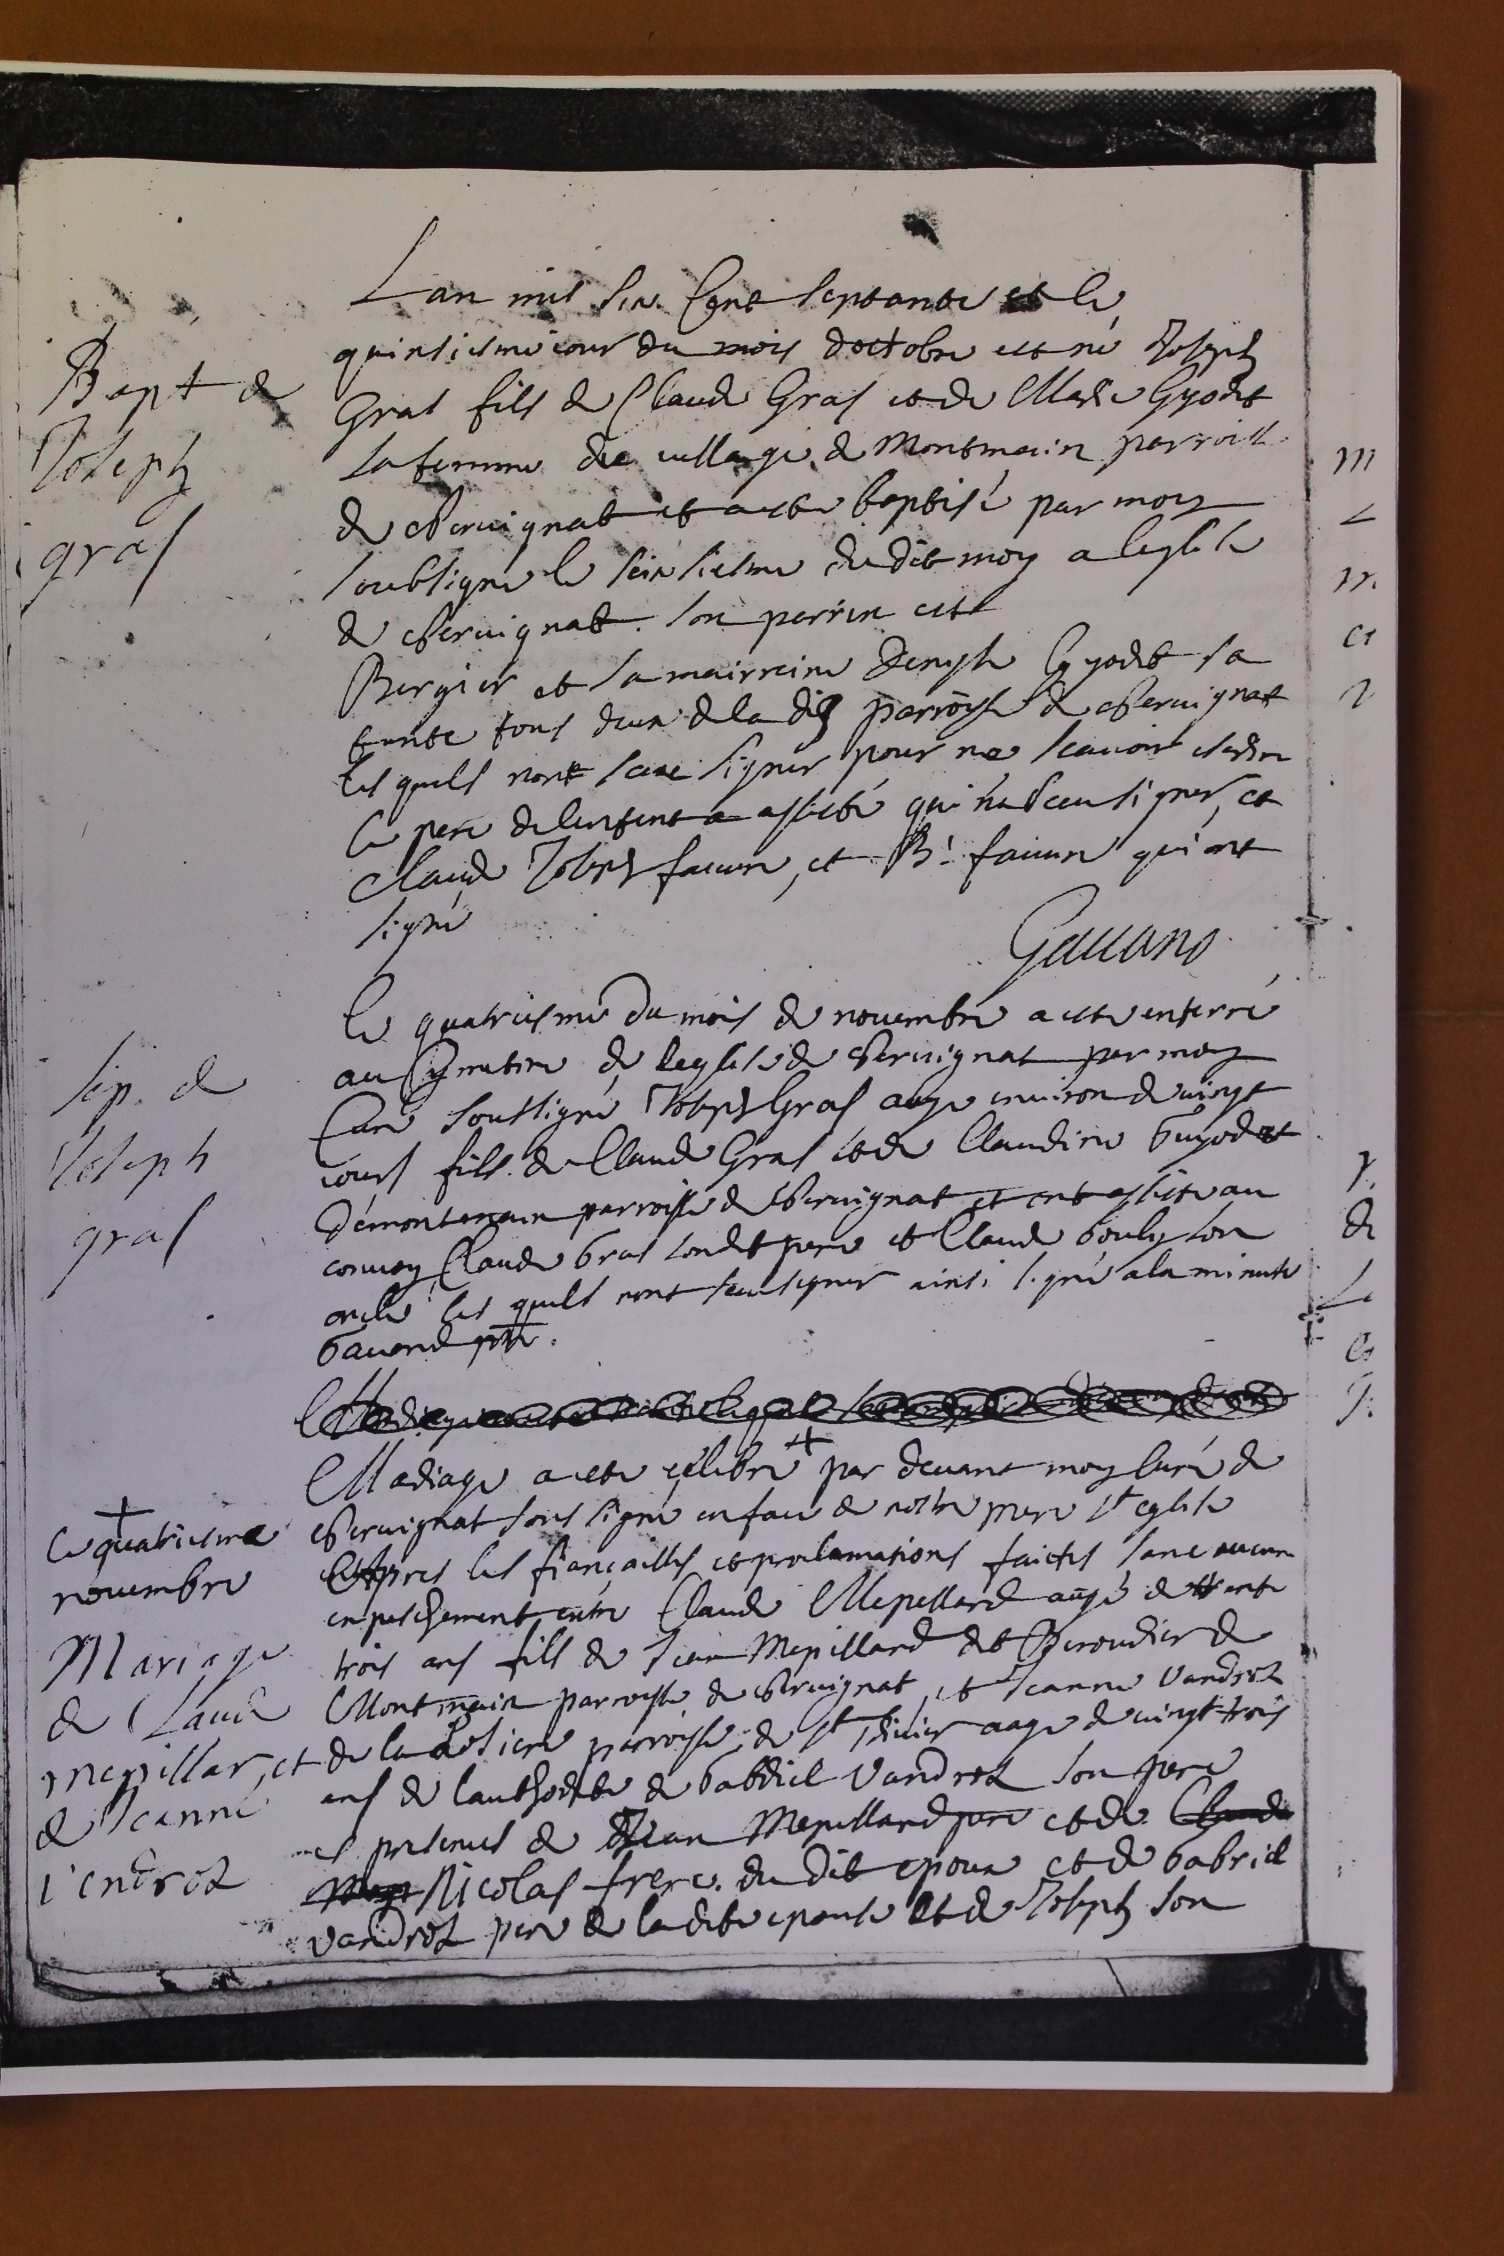 Bapt de
Joseph
gras
Lan mil six Cent septante et le
quinsiesme iour du mois doctobre est né Joseph
Gras fils de Claude Gras et de Marie Gyodet
sa femme du village de Montmain parroisse
de Chervignat et a este baptisé par moy
soubsigné le seinsiesme dudit moy a leglise
de Chervignat. son parrin est
Bergier et sa mairreine Denyse Gyodet sa
tante tous deux de la dit parroysse de Chervignat
les quels nont sceu signer pour ne scavoir
le pere de lenfent a assisté qui na sceu signer, et
Claude Joseph favre, et B. favre qui ont
signé
Gauand
Sep. de
Joseph
gras
le quatriesme du mois de novembre a este enterré
au Cymetire de leglise de Chervignat par moy
Curé soussigné Joseph Gras aagé environ de vingt
iours fils de Claude Gras et de Claudine Guyodet
de montemain parroisse de Chervignat et ont assisté au
convoy Claude Gras sondit pere et Claude Gouly son
oncle les quels nont sceu signer ainsi signé a la minute
Gauand ptre.
+
le quatriesme
novembre
Mariage
de Claude
mepillar, et
de Jeanne
vendrot
Mariage a este celebré + par devant moy Curé de
Chervignat soussigné en face de nostre mere ste eglise
Apres les fiançailles et proclamations faictes sans aucun
enpeschement entre Claude Mepillard aagé de trente
trois ans fils de Jean Mepillard dit Peroudier de
Montmain parroysse de Chervignat et Jeanne vandrot
de la parroisse de st Didier aage de vingt trois
ans de lauthorite de Gabriel Vandrot son pere
es presences de Jean Mepillard pere et de
Nicolas frere du dit epoux et de Gabriel
vandrot pere de ladite epouse et de Joseph son